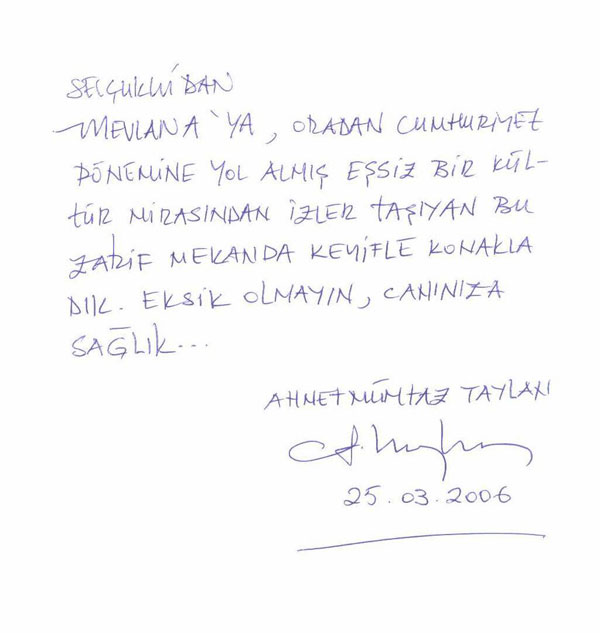 SELÇUKLU'DAN
MEVLANA'YA, ORADAN CUMHURİYET
DÖNEMİNE YOL ALMIŞ EŞSİZ BİR KÜL-
TÜR MİRASINDAN İZLER TAŞIYAN BU
ZARİF MEKANDA KEYİFLE KONAKLA
DIK. EKSİK OLMAYIN, CANINIZA
SAĞLIK...
AHMET MÜMTAZ TAYLAN
25.03.2006